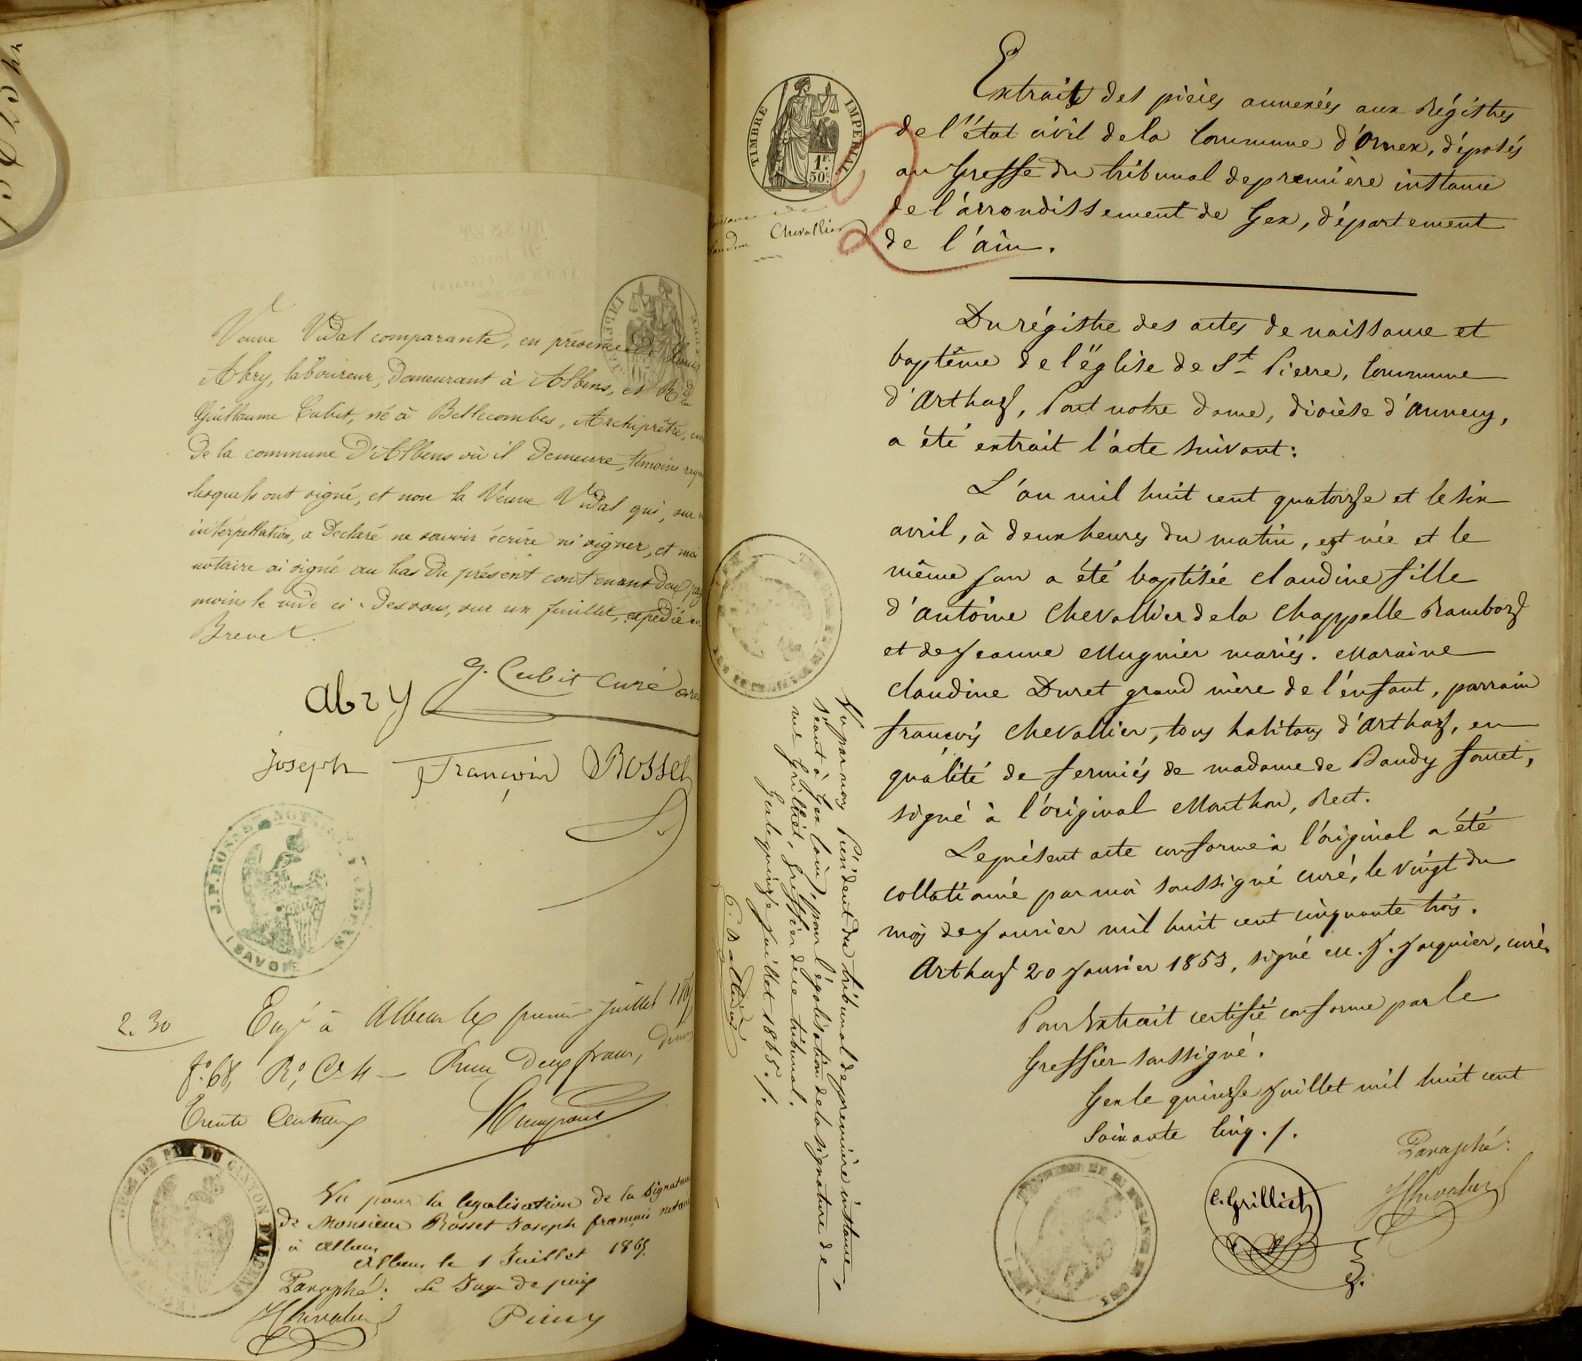 Veuve Vidal comparante, en présence de
Abry, laboureur, demeurant à Albens, et Rd
Guillaume Cubit, né à Bellecombes, Archiprêtre,
De la commune D'Albens où il demeure, témoins
lesquels ont signé, et non la Veuve Vidal qui, sur
interpellation, a Déclaré ne savoir écrire ni signer, et moi
notaire ai signé au bas du présent contenant deux
moins le vide ci-dessous, sur un feuillet, expédié en
Brevet.
abry G. Cubit curé
Joseph François Rosset
J. F. ROSSET NOTAIRE
SAVOIE
2.30
Engé à Albens le premier juillet
f° 68, R° Ce 4 Reçu Deux francs,
Trente Centimes
Vu pour la légalisation de la signature
de Monsieur Rosset Joseph françois notaire
à Albens
Albens le 1 Juillet 1865
Paraphé: Le Juge de paix
JChevalier
TIMBRE IMPERIAL
1f. 50c.
Chevallier
Extraits des pièces annexées aux Régistres
de l'état civil de la Commune d'Ornex, déposés
au Greffe du tribunal de première instance
de l'arrondissement de Gex, département
de l'ain.
Du régistre des actes de naissance et
baptême de l'église de St Pierre, Commune
d'Arthaz, Pont notre dame, diocèse d'Annecy,
a été extrait l'acte suivant:
L'an mil huit cent quatorze et le six
avril, à deux heures du matin, est née et le
même jour a été baptisée claudine fille
d'antoine Chevallier de la Chappelle Rambouz
et de Jeanne Mugnier mariés. Maraine
claudine Duret grand mère de l'enfant, parrain
françois Chevallier, tous habitans d'Arthaz, en
qualité de fermiés de madame de
signé à l'original Monthon, Rect.
Le présent acte conforme à l'original a été
collationné par moi soussigné curé, le vingt du
mois de janvier mil huit cent cinquante trois.
Arthaz 20 janvier 1853, signé M. J. Jacquier, curé.
Pour Extrait certifié conforme par le
Greffier soussigné.
Gex le quinze juillet mil huit cent
soixante cinq ./.
Paraphé:
C. Grilliet
JChevalier
Vu par nous Président du tribunal de première instance,
séant à Gex (ain), pour légalisation de la signature de
me Grilliet, greffier de ce tribunal.
Gex le quinze juillet 1865 ./.